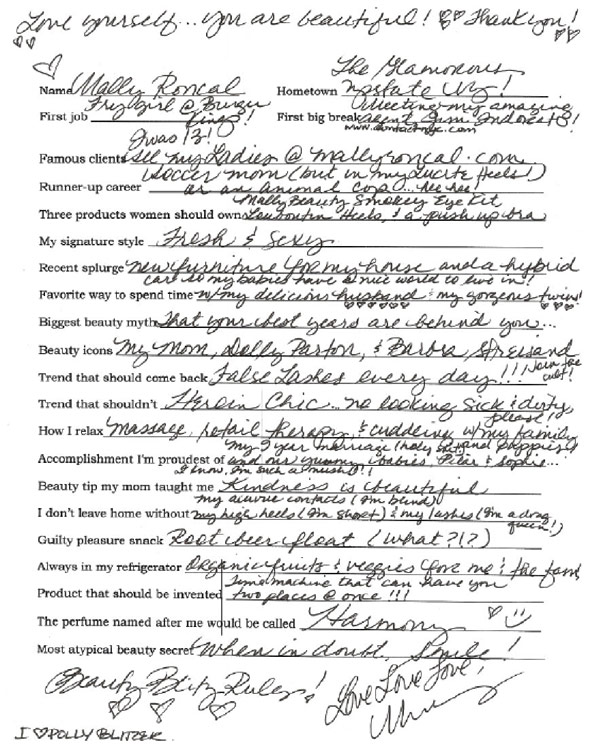 Love yourself... you are beautiful! Thank you!
The Glamorous
Name Mally Roncal Hometown Upstate NY!
Fry girl @ Burger King! Meeting my amazing
First job First big break agent
I was 13!
Famous clients See my Ladies @ mallyroncal.com
Soccer mom (but in my Lucite Heels!)
Runner-up career or an Animal Cop... hee hee!
Mally Beauty Smokey Eye Kit
Three products women should own Louboutin Heels, & a push up bra
My signature style Fresh & Sexy
Recent splurge new furniture for my house and a hybrid
car so my babies have a nice world to live in!
Favorite way to spend time w/ my delicious husband & my gorgeous twins!
Biggest beauty myth That your best years are behind you...
Beauty icons My Mom, Dolly Parton, & Barbra Streisand
Trend that should come back False Lashes every day!!!
Trend that shouldn't Heroin Chic... no looking sick & dirty please!
How I relax Massage, retail therapy & cuddling w/ my family
my 9 year marriage (holy
Accomplishment I'm proudest of and our yummy babies Pilar & Sophie...
I know, I'm such a mush!!!
Beauty tip my mom taught me Kindness is beautiful
my acuvue contacts (I'm blind)
I don't leave home without my high heels (I'm short) & my lashes (I'm a drag queen!)
Guilty pleasure snack Root beer float (what?!?)
Always in my refrigerator Organic fruits & veggies for me & the fam
time machine that can have you
Product that should be invented two places @ once!!!
The perfume named after me would be called Harmony
Most atypical beauty secret When in doubt, Smile!
Beauty Blitz Rules! Love Love Love,
Mally
I ♡ POLLY BLITZER